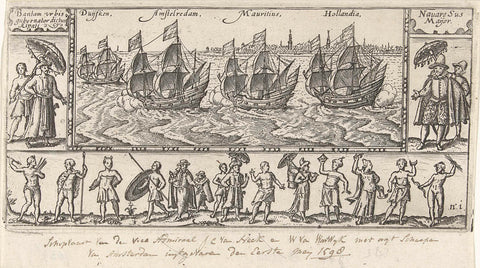 Bantam vrbis
gubernator dictus
Duyfken, Amstelredam, Mauritius, Hollandia,
Navarc Sus
Maior.
n. 1
Scheepvaart van de Vice Admiraal J C van Neck en W van Warwyk met agt Scheepen
van Amsterdam uytgevaren den Eerste May 1598